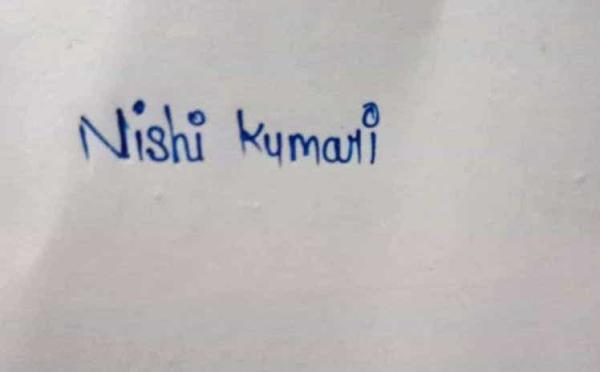 Nishi Kumari